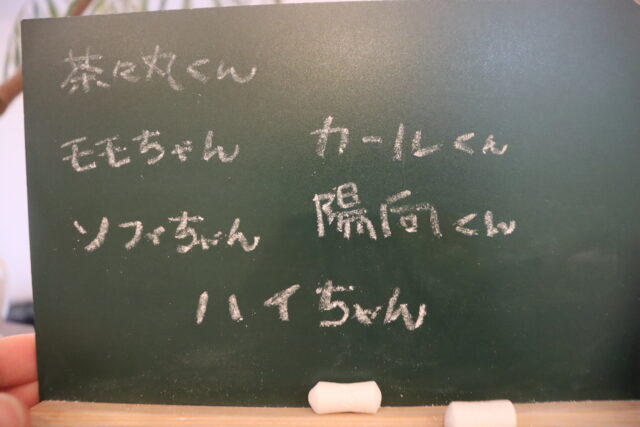 茶々丸くん
モモちゃん カールくん
ソフィちゃん 陽向くん
ハイちゃん